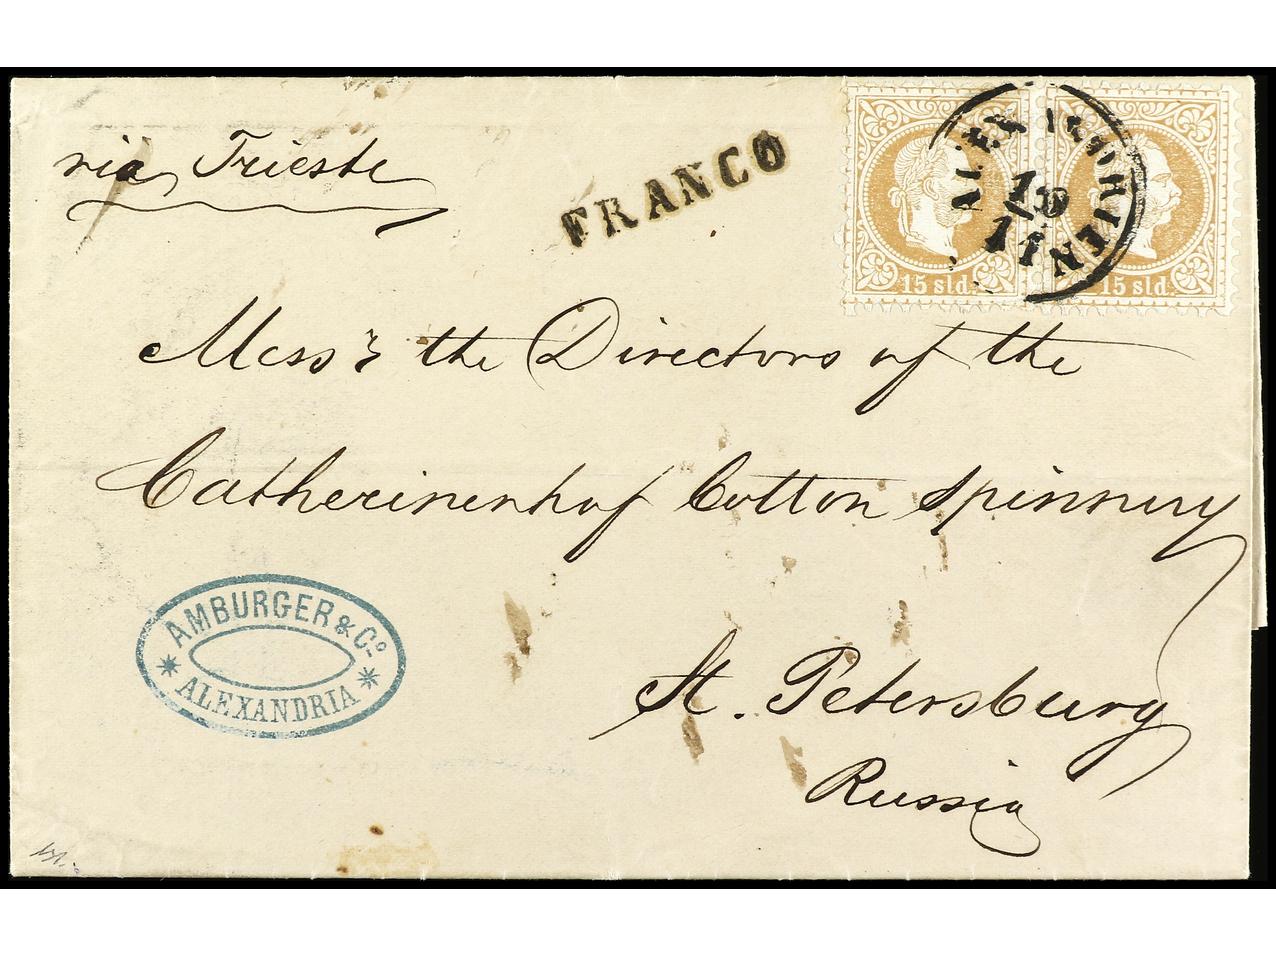 via Trieste
FRANCO
ALEXANDRIEN
11
15 sld.
15 sld.
Mess rs the Directors of the
Catherinenhof Cotton Spinnery
AMBURGER & Co.
ALEXANDRIA
St. Petersburg
Russia